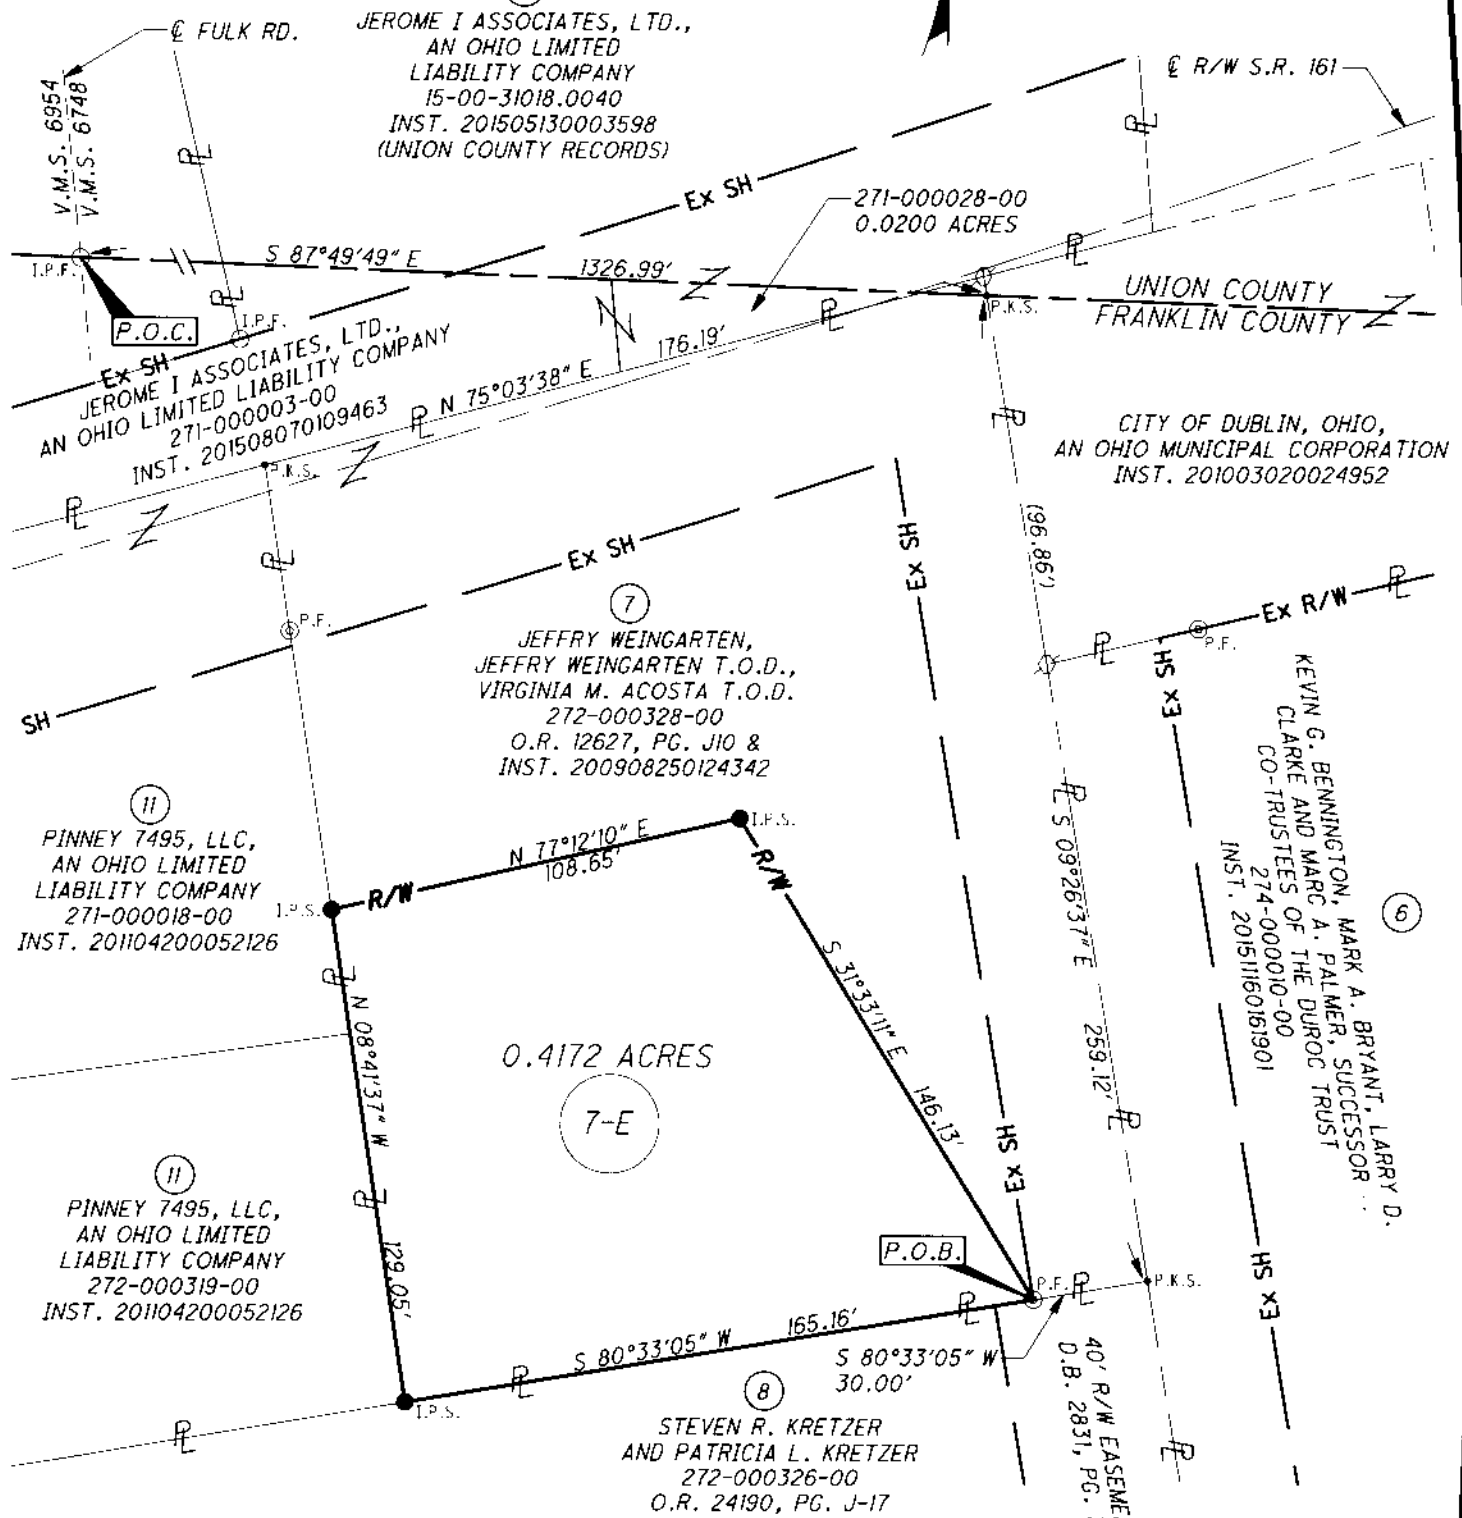 ℄ FULK RD.
V.M.S. 6954
V.M.S. 6748
JEROME I ASSOCIATES, LTD.,
AN OHIO LIMITED
LIABILITY COMPANY
15-00-31018.0040
INST. 201505130003598
(UNION COUNTY RECORDS)
℄ R/W S.R. 161
PL
PL
Ex SH
271-000028-00
0.0200 ACRES
I.P.F.
S 87°49'49" E
1326.99'
PL
UNION COUNTY
FRANKLIN COUNTY
P.K.S.
P.O.C.
PL
I.P.F.
Ex SH
JEROME I ASSOCIATES, LTD.,
AN OHIO LIMITED LIABILITY COMPANY
271-000003-00
INST. 201508070109463
N 75°03'38" E
176.19'
PL
PL
PL
P.K.S.
PL
PL
CITY OF DUBLIN, OHIO,
AN OHIO MUNICIPAL CORPORATION
INST. 201003020024952
(96.86')
Ex SH
Ex SH
PL
P.F.
Ex R/W
PL
PL
P.F.
7
JEFFRY WEINGARTEN,
JEFFRY WEINGARTEN T.O.D.,
VIRGINIA M. ACOSTA T.O.D.
272-000328-00
O.R. 12627, PG. J10 &
INST. 200908250124342
SH
Ex SH
KEVIN G. BENNINGTON, MARK A. BRYANT, LARRY D.
CLARKE AND MARC A. PALMER, SUCCESSOR
CO-TRUSTEES OF THE DUROC TRUST
274-000010-00
INST. 201511160161901
6
11
PINNEY 7495, LLC,
AN OHIO LIMITED
LIABILITY COMPANY
271-000018-00
INST. 201104200052126
I.P.S.
R/W
N 77°12'10" E
108.65'
I.P.S.
R/W
S 31°33'11" E
146.13'
PL
S 09°26'37" E
259.12'
PL
PL
N 08°41'37" W
PL
129.05'
0.4172 ACRES
7-E
Ex SH
Ex SH
11
PINNEY 7495, LLC,
AN OHIO LIMITED
LIABILITY COMPANY
272-000319-00
INST. 201104200052126
P.O.B.
P.F.
PL
P.K.S.
PL
S 80°33'05" W
165.16'
S 80°33'05" W
30.00'
PL
I.P.S.
PL
8
STEVEN R. KRETZER
AND PATRICIA L. KRETZER
272-000326-00
O.R. 24190, PG. J-17
40' R/W EASEME
D.B. 2831, PG.
PL